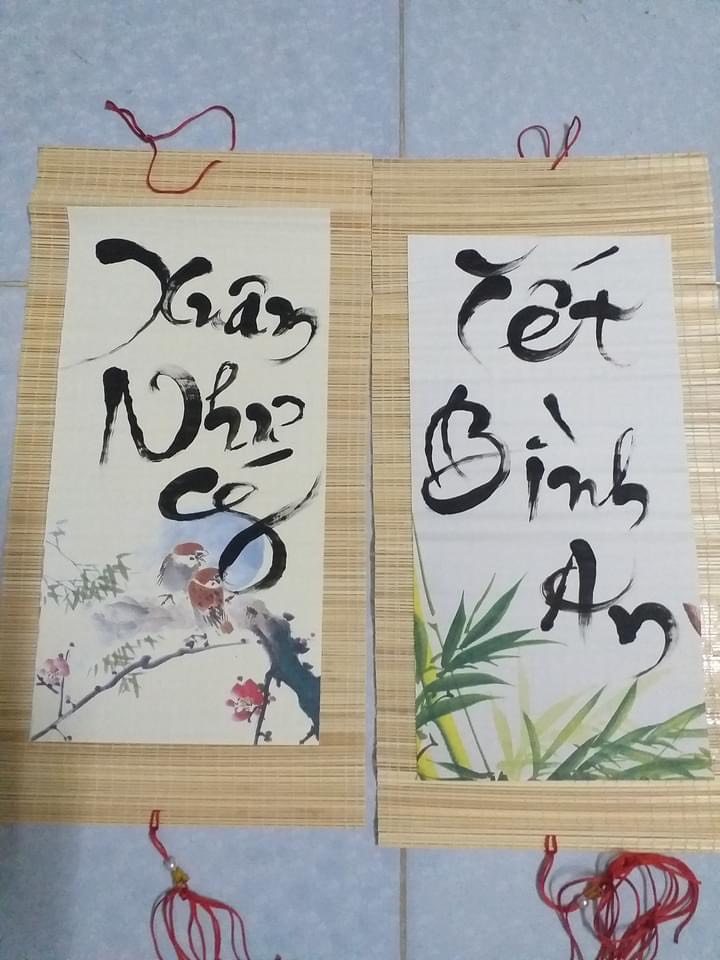 Xuân
Như
Ý
Tết
Bình
An